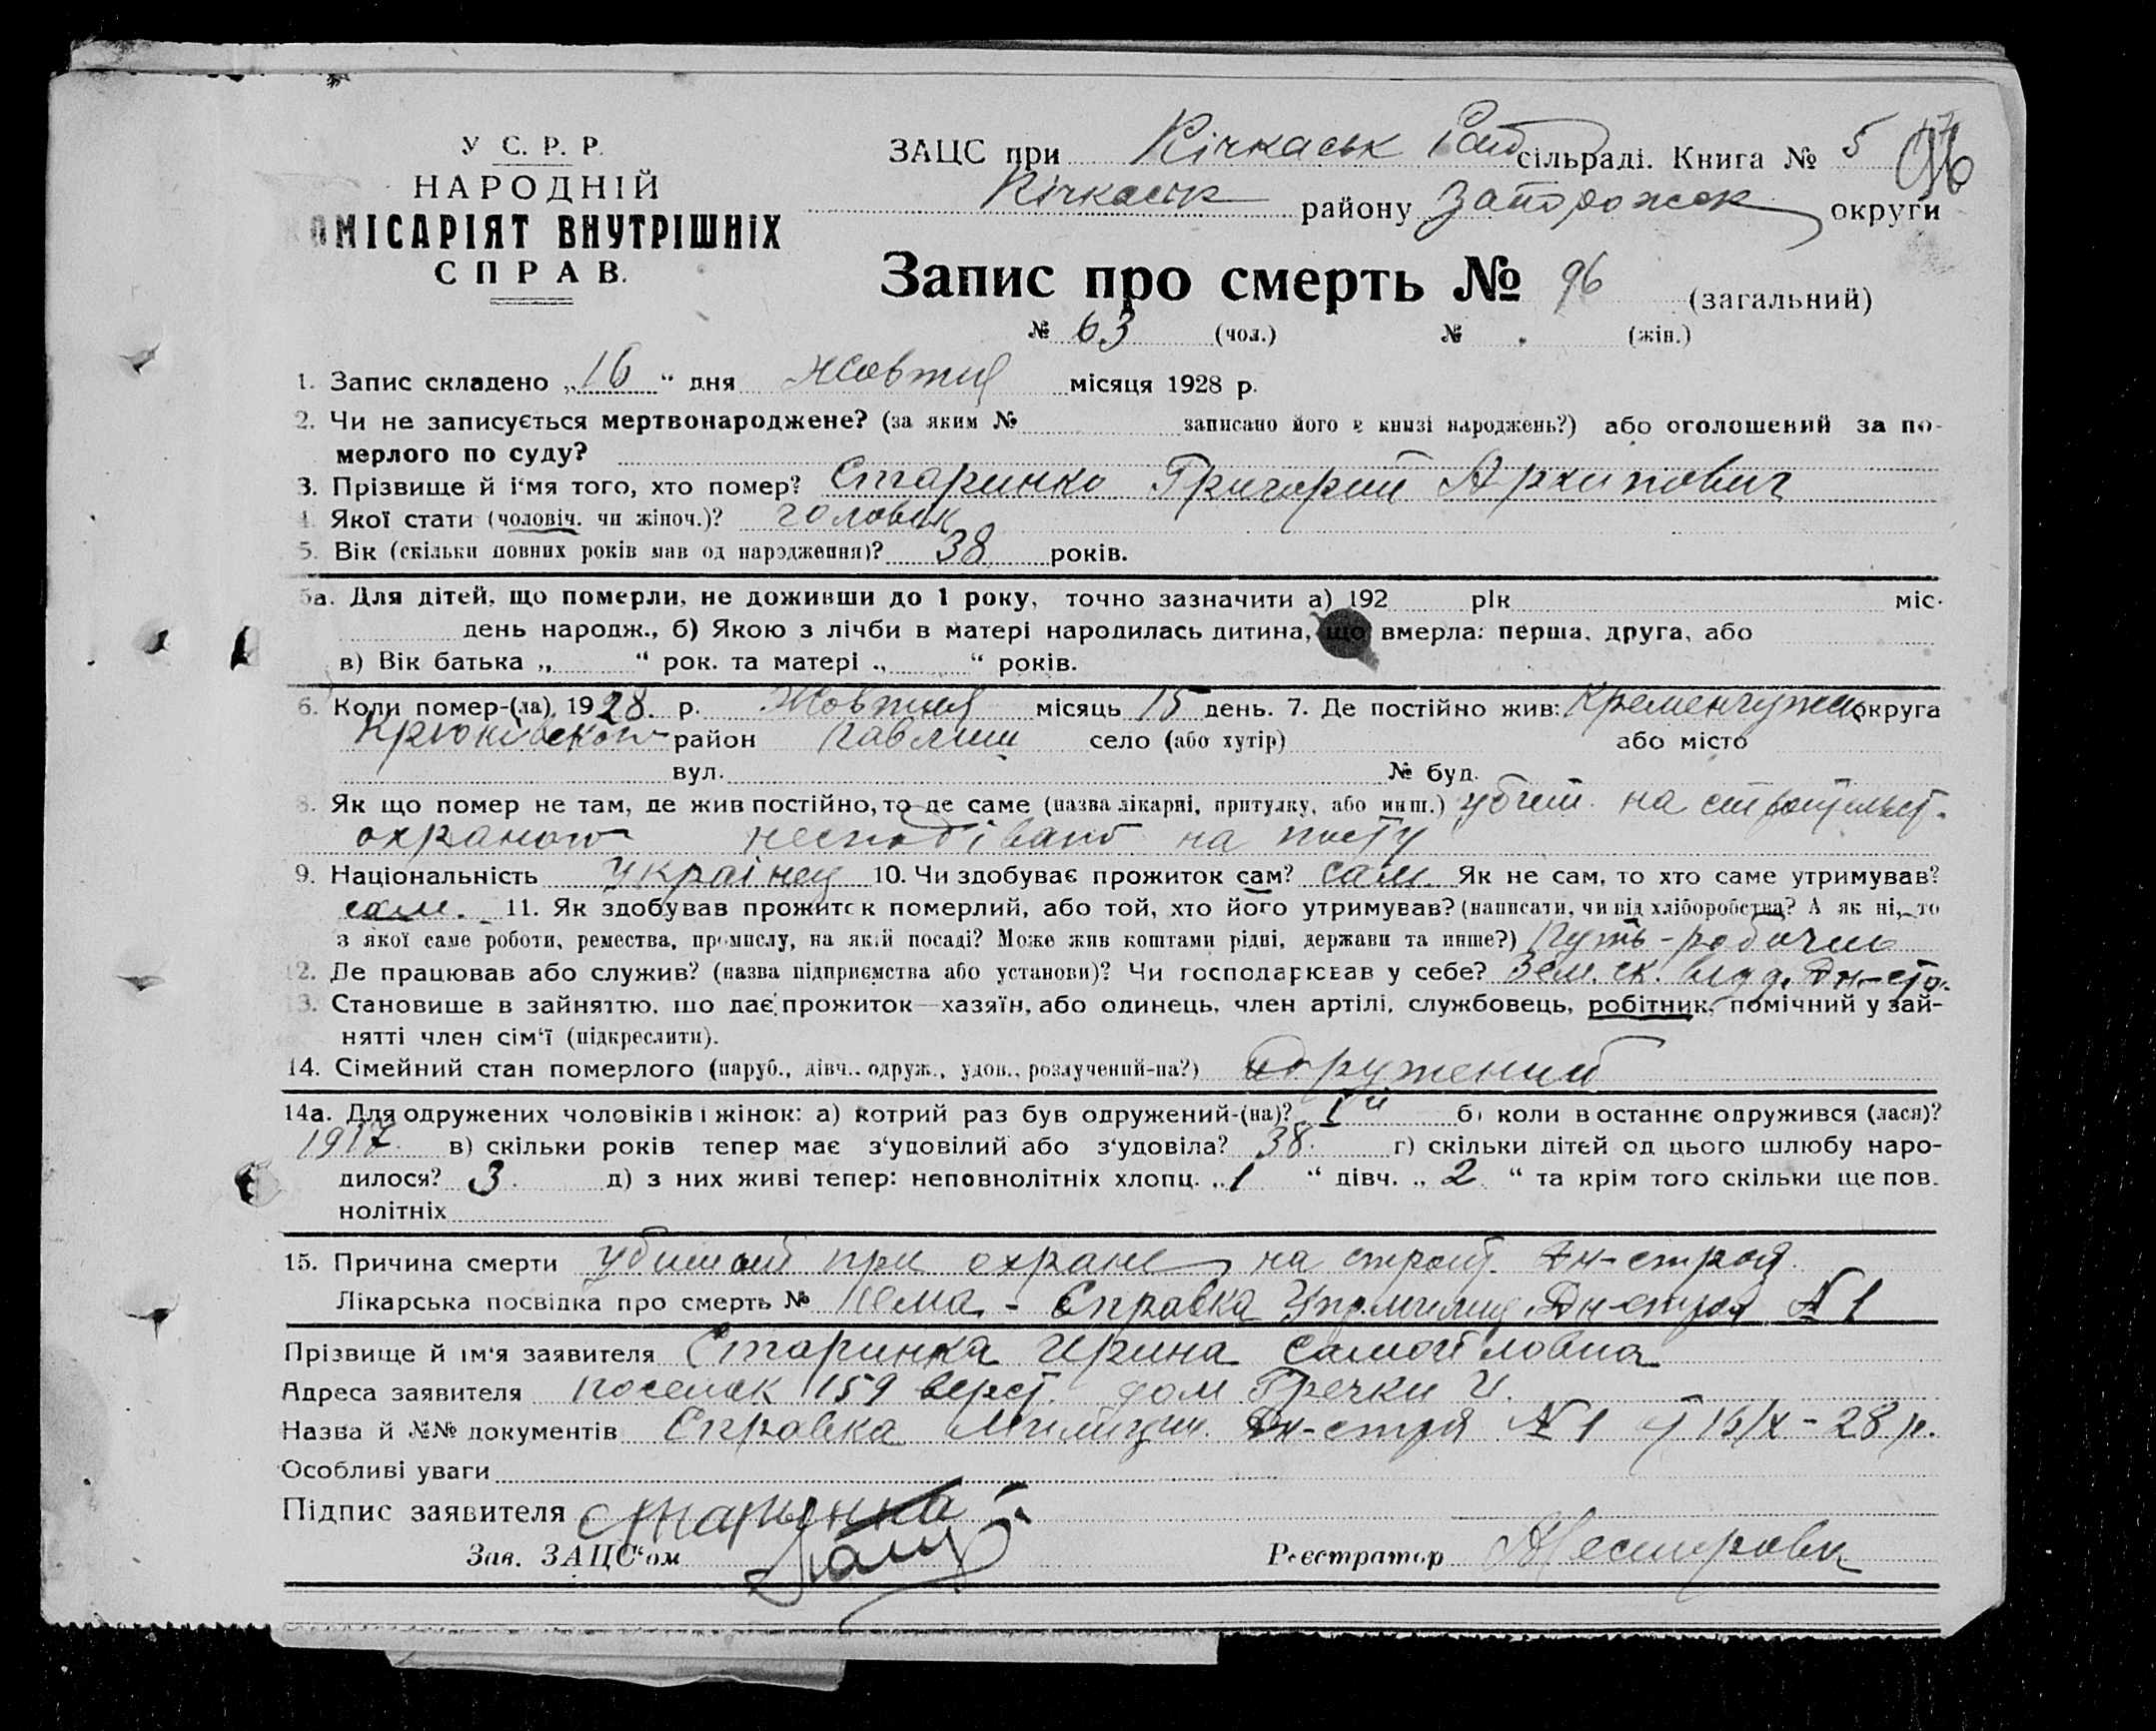 У С. Р. Р.
НАРОДНІЙ
КОМІСАРІЯТ ВНУТРІШНІХ
СПРАВ.
ЗАЦС при Кічкаськ сільраді. Книга № 5 96
Кічкаськ району Запорожск округи
Запис про смерть № 96 (загальний)
№ 63 (чол.) № (жін.)
1. Запис складено „16“ дня Жовтня місяця 1928 р.
2. Чи не записується мертвонароджене? (за яким № записано його в книзі народжень?) або оголошений за по-
мерлого по суду?
3. Прізвище й і'мя того, хто помер? Старинко Григорий Архипович
4. Якої стати (чоловіч. чи жіноч.)? чоловік
5. Вік (скільки повних років мав од народження)? 38 років.
5а. Для дітей, що померли, не доживши до 1 року, точно зазначити а) 192 рік міс.
день народж., б) Якою з лічби в матері народилась дитина, що вмерла: перша, друга, або
в) Вік батька „ “ рок. та матері „ “ років.
6. Коли помер-(ла), 1928. р. Жовтня місяць 15 день. 7. Де постійно жив: Кременчужск округа
Крюківском район Павлиш село (або хутір) або місто
вул. № буд.
8. Як що помер не там, де жив постійно, то де саме (назва лікарні, притулку, або инш.) убит на
охраною несподівано на посту
9. Національність українец 10. Чи здобуває прожиток сам? сам. Як не сам, то хто саме утримував?
сам. 11. Як здобував прожиток померлий, або той, хто його утримував? (написати, чи від хліборобства? А як ні, то
з якої саме роботи, ремества, промислу, на якій посаді? Може жив коштами рідні, держави та инше?) Путь-робочим
12. Де працював або служив? (назва підприємства або установи)? Чи господарював у себе? Зем. ск. відд. Дн-стр.
13. Становище в зайняттю, що дає прожиток—хазяїн, або одинець, член артілі, службовець, робітник, помічний у зай-
нятті член сім'ї (підкреслити).
14. Сімейний стан померлого (паруб., дівч., одруж., удов., розлучений-на?) Одружений
14а. Для одружених чоловіків і жінок: а) котрий раз був одружений-(на)? 1й б) коли в останнє одружився (лася)?
1917 в) скільки років тепер має з'удовілий або з'удовіла? 38. г) скільки дітей од цього шлюбу наро-
дилося? 3. д) з них живі тепер: неповнолітніх хлопц. „1“ дівч. „2“ та крім того скільки ще пов.
нолітніх
15. Причина смерти при охране на строит. Дн-строя.
Лікарська посвідка про смерть № Нема - Справка Упр. милиц. Дн-строя №1
Прізвище й ім'я заявителя Старинка Ирина Самойловна
Адреса заявителя поселок 159 верст. дом Гречки И.
Назва й №№ документів Справка Милиции. Дн-строя №1 16/X - 28 р.
Особливі уваги
Підпис заявителя Старынка
Зав. ЗАЦС'ом
Реєстратор